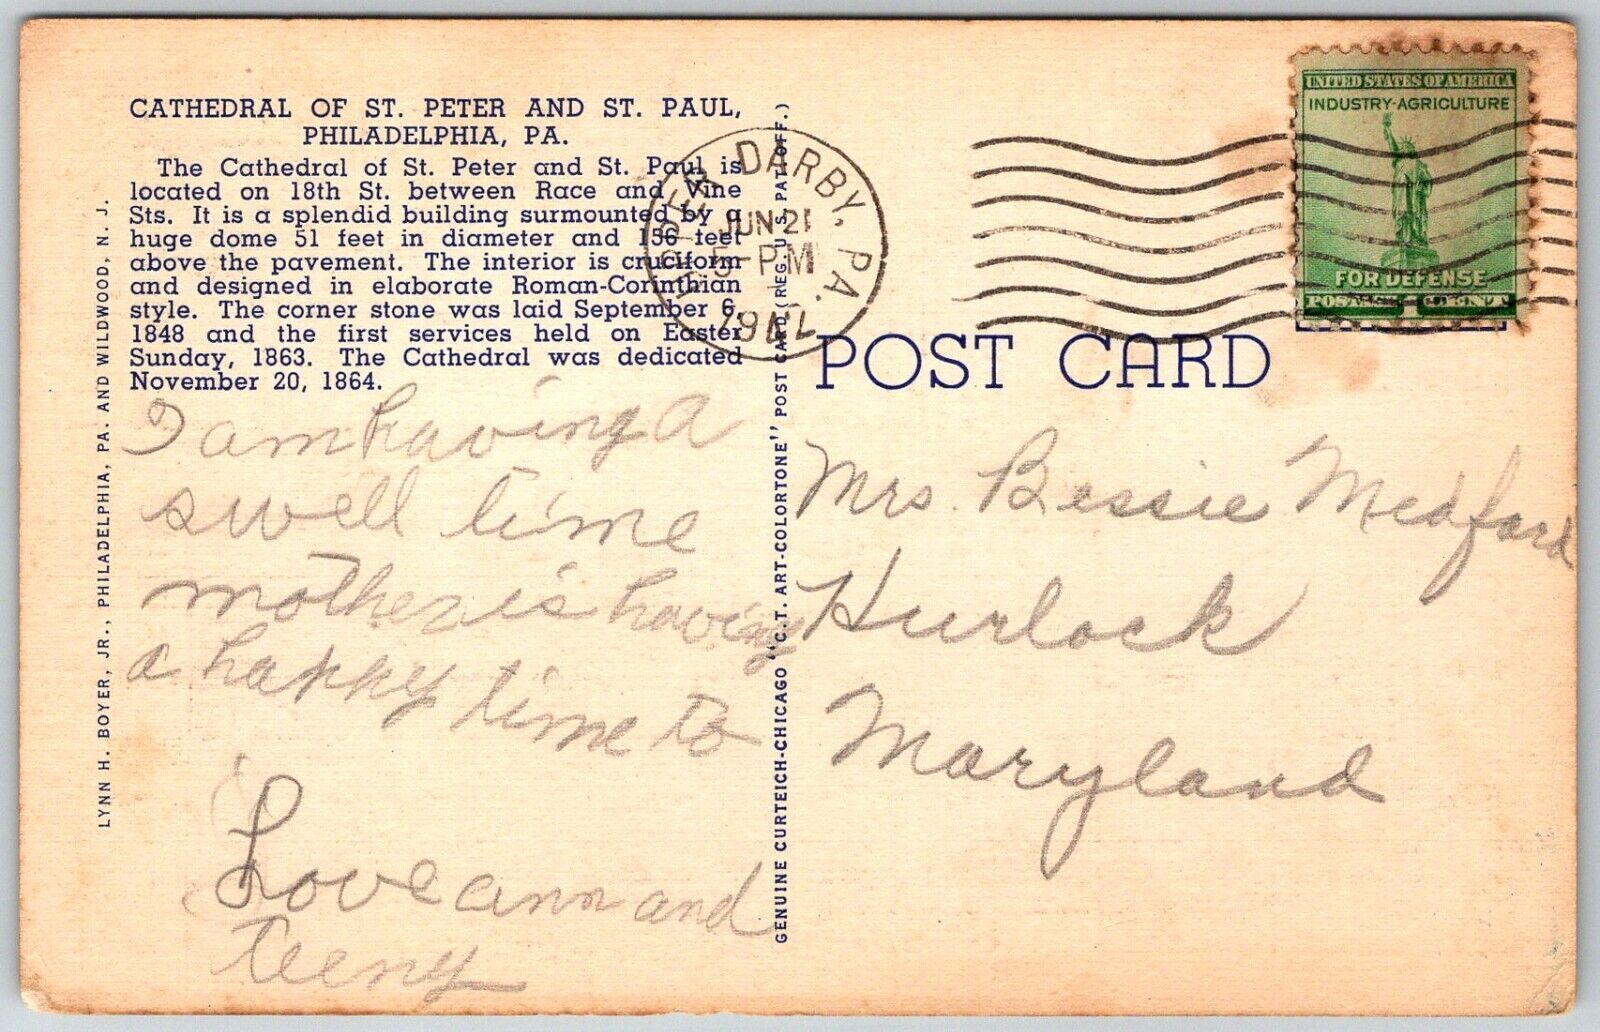 CATHEDRAL OF ST. PETER AND ST. PAUL,
PHILADELPHIA, PA.
The Cathedral of St. Peter and St. Paul is
located on 18th St. between Race and Vine
Sts. It is a splendid building surmounted by a
huge dome 51 feet in diameter and 156 feet
above the pavement. The interior is cruciform
and designed in elaborate Roman-Corinthian
style. The corner stone was laid September 6,
1848 and the first services held on Easter
Sunday, 1863. The Cathedral was dedicated
November 20, 1864.
I am having a
swell time
mother is having
a happy time to
Love ann and
teeny
LYNN H. BOYER, JR., PHILADELPHIA, PA. AND WILDWOOD, N. J.
GENUINE CURTEICH-CHICAGO "C.T. ART-COLORTONE" POST CARD (REG. U.S. PAT. OFF.)
UPPER DARBY, PA.
JUN 21
5-PM
1941
UNITED STATES OF AMERICA
INDUSTRY-AGRICULTURE
FOR DEFENSE
POSTAGE 1 CENT
POST CARD
Mrs. Bessie Medford
Hurlock
Maryland